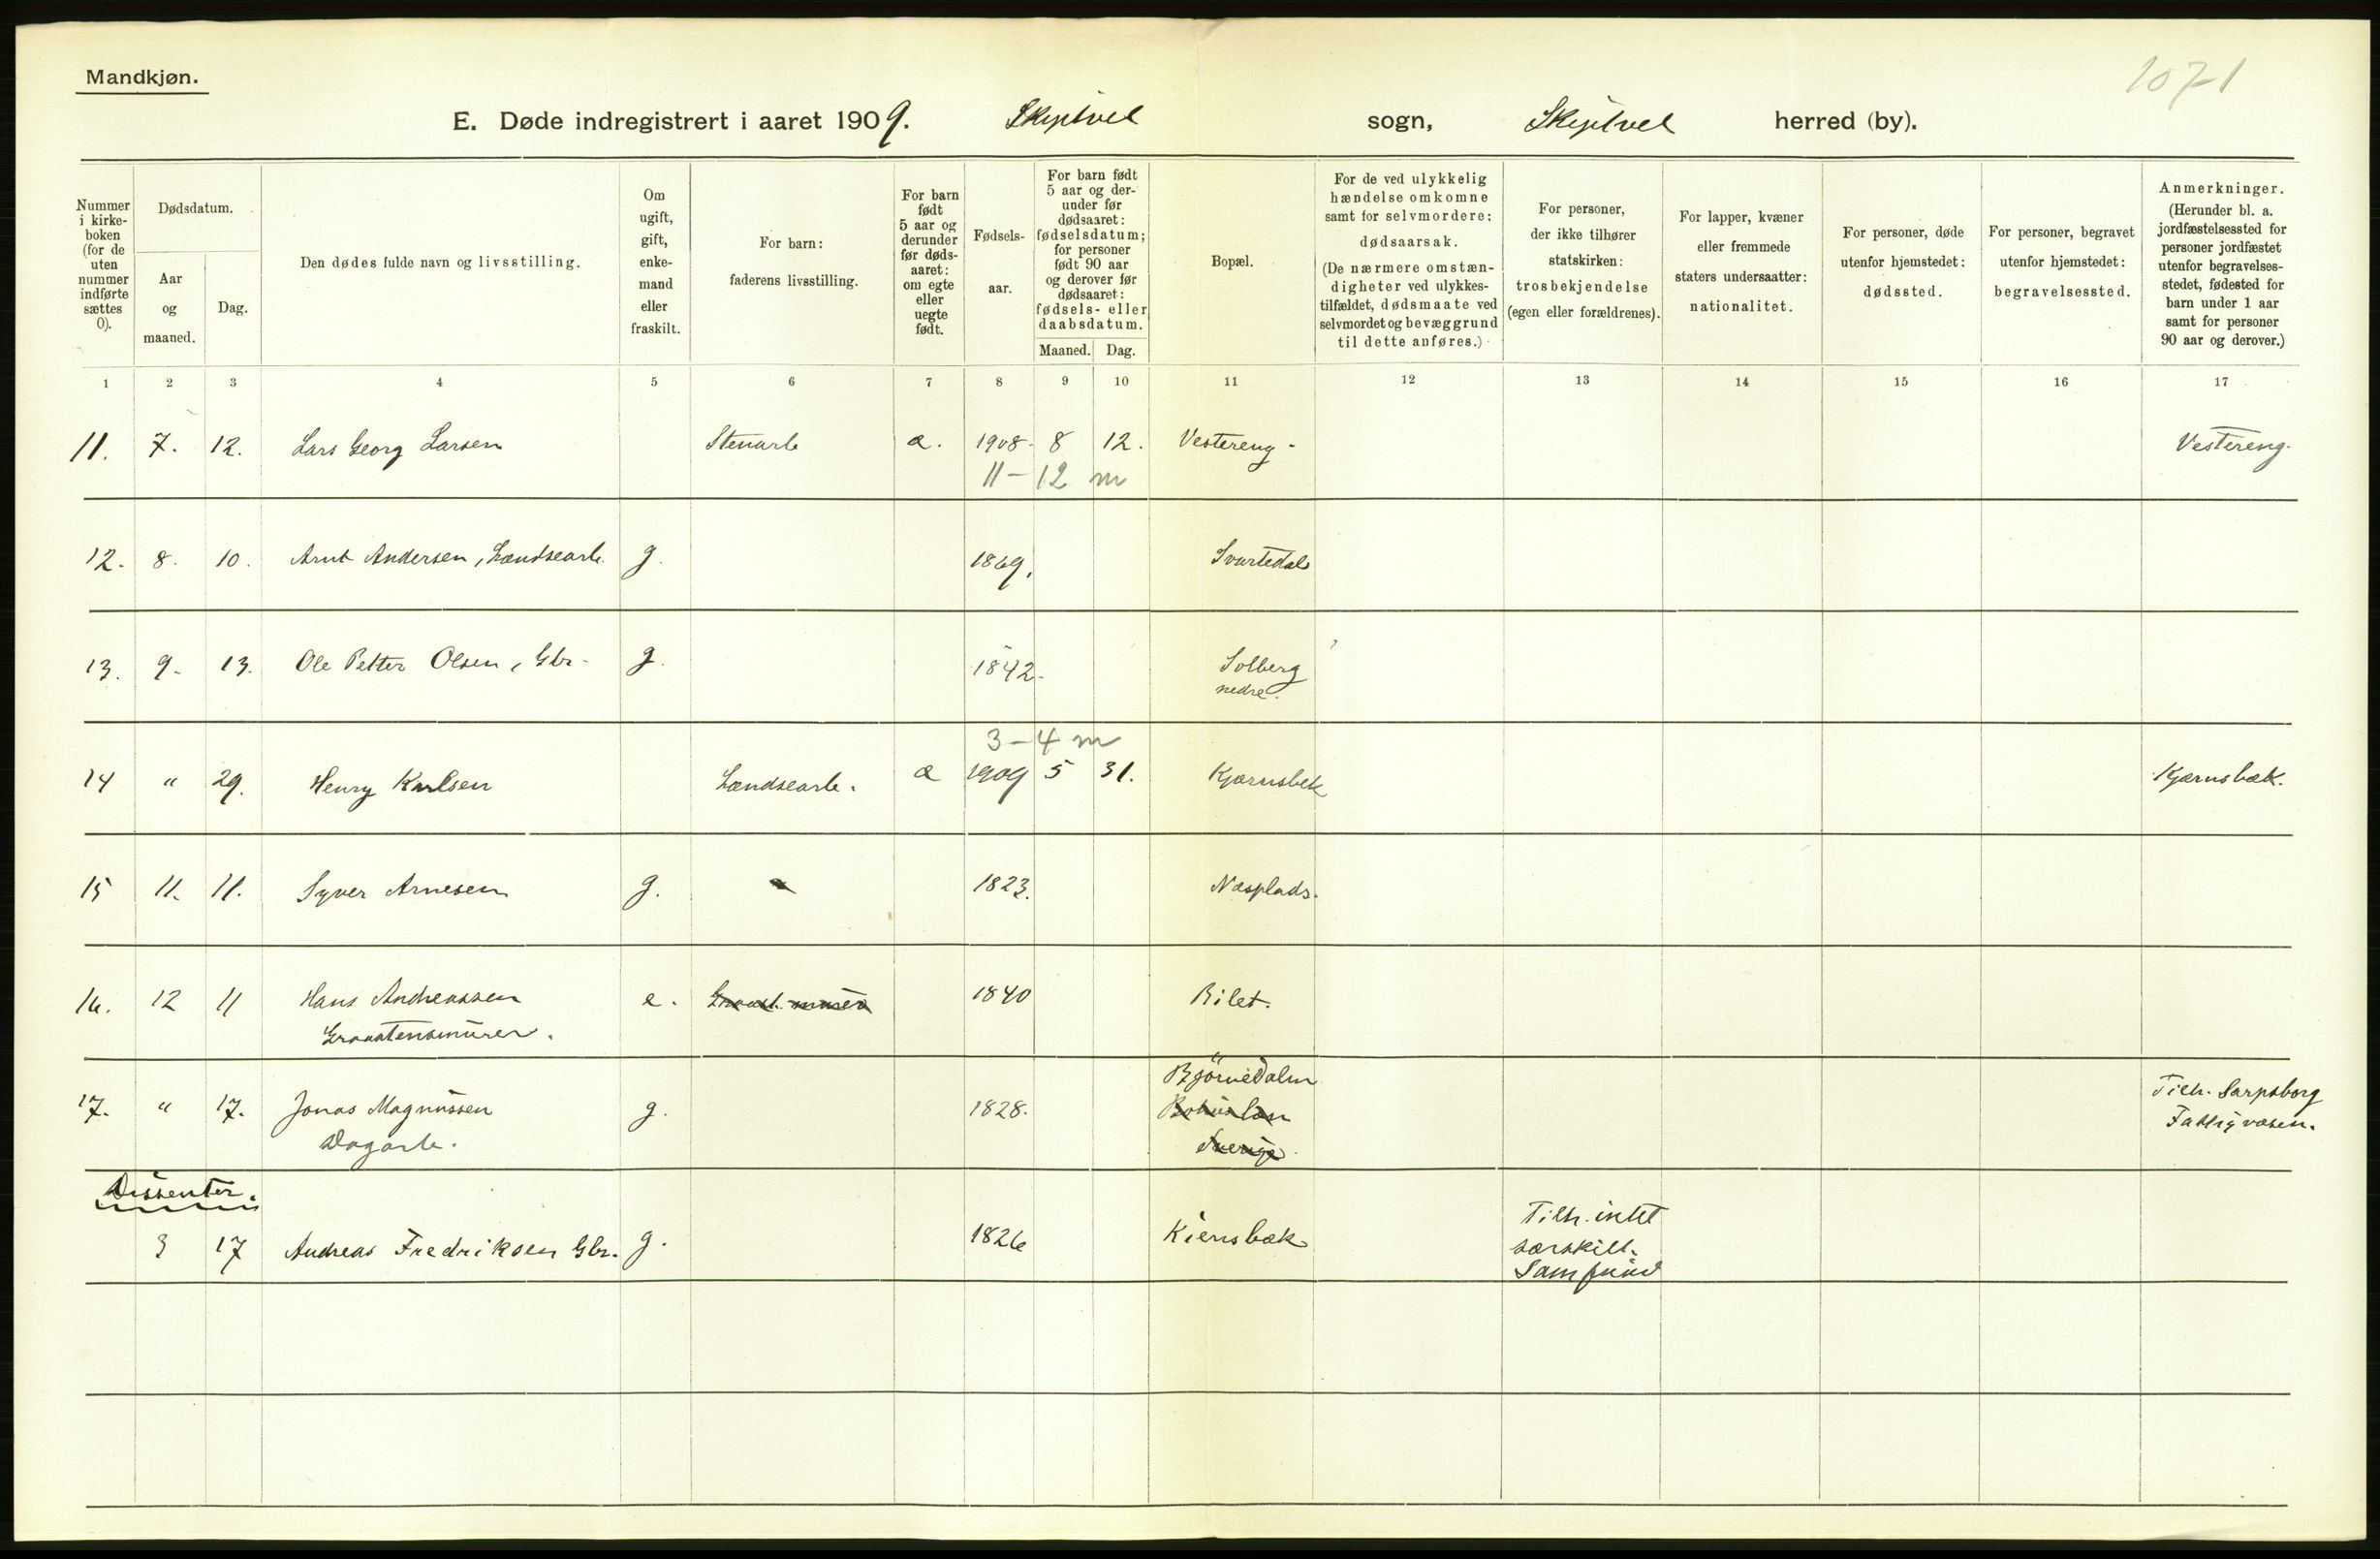 Mandkjøn.
1071
E. Døde indregistrert i aaret 1909. Skiptvet sogn, Skiptvet herred (by).
Nummer i kirke-boken (for de uten nummer indførte sættes 0).
Dødsdatum.
Aar og maaned.
Dag.
Den dødes fulde navn og livsstilling.
Om ugift, gift, enke-mand eller fraskilt.
For barn: faderens livsstilling.
For barn født 5 aar og derunder før døds-aaret: om egte eller uegte født.
Fødsels-aar.
For barn født 5 aar og der-under før dødsaaret: fødselsdatum; for personer født 90 aar og derover før dødsaaret: fødsels- eller daabsdatum.
Maaned. Dag.
Bopæl.
For de ved ulykkelig hændelse omkomne samt for selvmordere: dødsaarsak. (De nærmere omstæn-digheter ved ulykkes-tilfældet, dødsmaate ved selvmordet og bevæggrund til dette anføres.)
For personer, der ikke tilhører statskirken: trosbekjendelse (egen eller forældrenes).
For lapper, kvæner eller fremmede staters undersaatter: nationalitet.
For personer, døde utenfor hjemstedet: dødssted.
For personer, begravet utenfor hjemstedet: begravelsessted.
Anmerkninger. (Herunder bl. a. jordfæstelsessted for personer jordfæstet utenfor begravelses-stedet, fødested for barn under 1 aar samt for personer 90 aar og derover.)
1 2 3 4 5 6 7 8 9 10 11 12 13 14 15 16 17
11. 7. 12. Lars Georg Larsen Stenarb æ. 1908. 8 12. Vestereng. Vestereng.
11-12 m
12. 8. 10. Arnt Andersen, Lændsearb. g. 1869. Svartedal
13. 9. 13. Ole Petter Olsen, Gbr. g. 1842. Solberg
nedre.
3-4 m
14 " 29. Henry Karlsen Lændsearb. æ 1909 5 31. Kjærnsbek Kjærnsbæk.
15 11. 11. Syver Arnesen g. 1823. Næsplads.
16. 12 11 Hans Andreassen e. 1840 Rilet.
Graastensmurer.
Bjørnedalen
17. " 17. Jonas Magnussen g. 1828. Bohuslæn Tilh. Sarpsborg
Dagarb. Sverige. Fattigvæsen.
Dissenter.
3 17 Andreas Fredriksen Gbr. g. 1826 Kiensbæk Tilh. intet
særskilt
Samfund